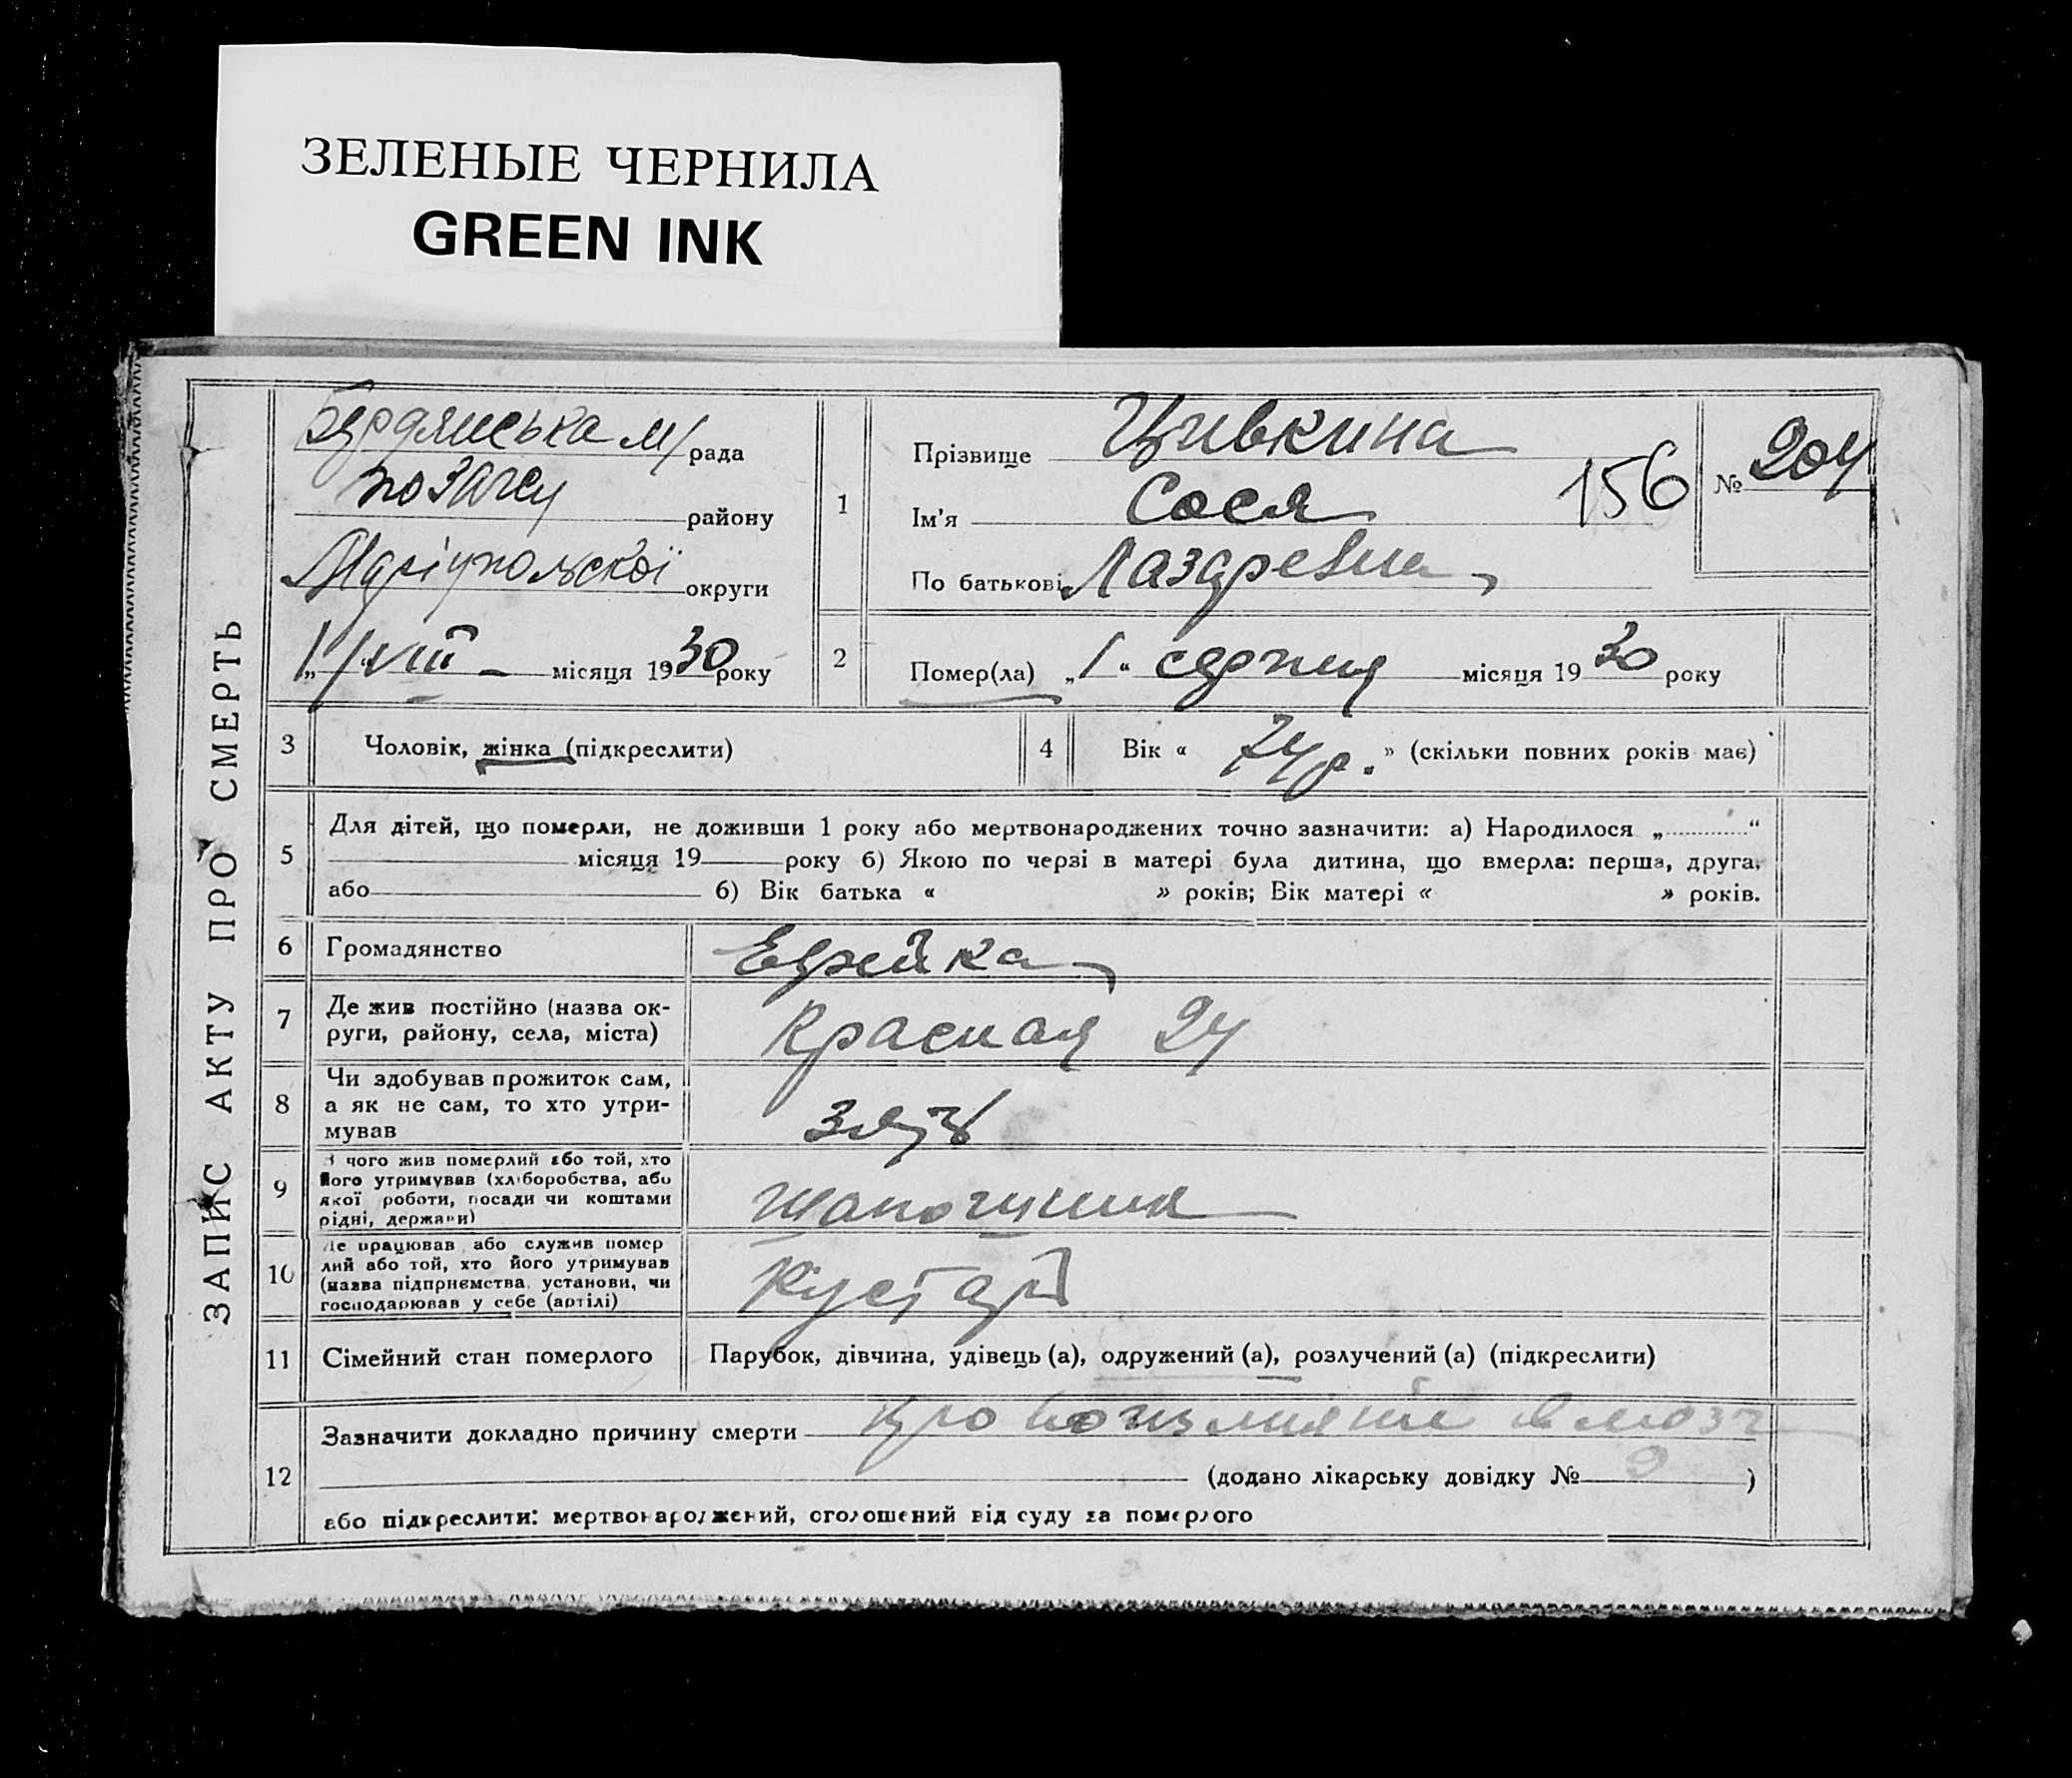 ЗЕЛЕНЫЕ ЧЕРНИЛА
GREEN INK
ЗАПИС АКТУ ПРО СМЕРТЬ
Бердянська м/рада
району
Маріупольскої округи
„1“ VIII місяця 1930 року
1
Прізвище Цивкина
Ім'я Сося
По батькові Лазаревна
156
№ 204
2 Помер(ла) „1“ серпня місяця 1930 року
3 Чоловік, жінка (підкреслити)
4 Вік « 74 р. » (скільки повних років має)
5 Для дітей, що померли, не доживши 1 року або мертвонароджених точно зазначити: а) Народилося „ “
місяця 19 року б) Якою по черзі в матері була дитина, що вмерла: перша, друга,
або б) Вік батька « » років; Вік матері « » років.
6 Громадянство Еврейка
7 Де жив постійно (назва ок-
руги, району, села, міста) Красная 24
8 Чи здобував прожиток сам,
а як не сам, то хто утри-
мував зять
9 З чого жив померлий або той, хто
його утримував (хліборобства, або
якої роботи, посади чи коштами
рідні, держави)
10 Де працював або служив помер
лий або той, хто його утримував
(назва підприємства, установи, чи
господарював у себе (артілі) Кустар
11 Сімейний стан померлого Парубок, дівчина, удівець (а), одружений (а), розлучений (а) (підкреслити)
12 Зазначити докладно причину смерти
(додано лікарську довідку № )
або підкреслити: мертвонароджений, оголошений від суду за померлого